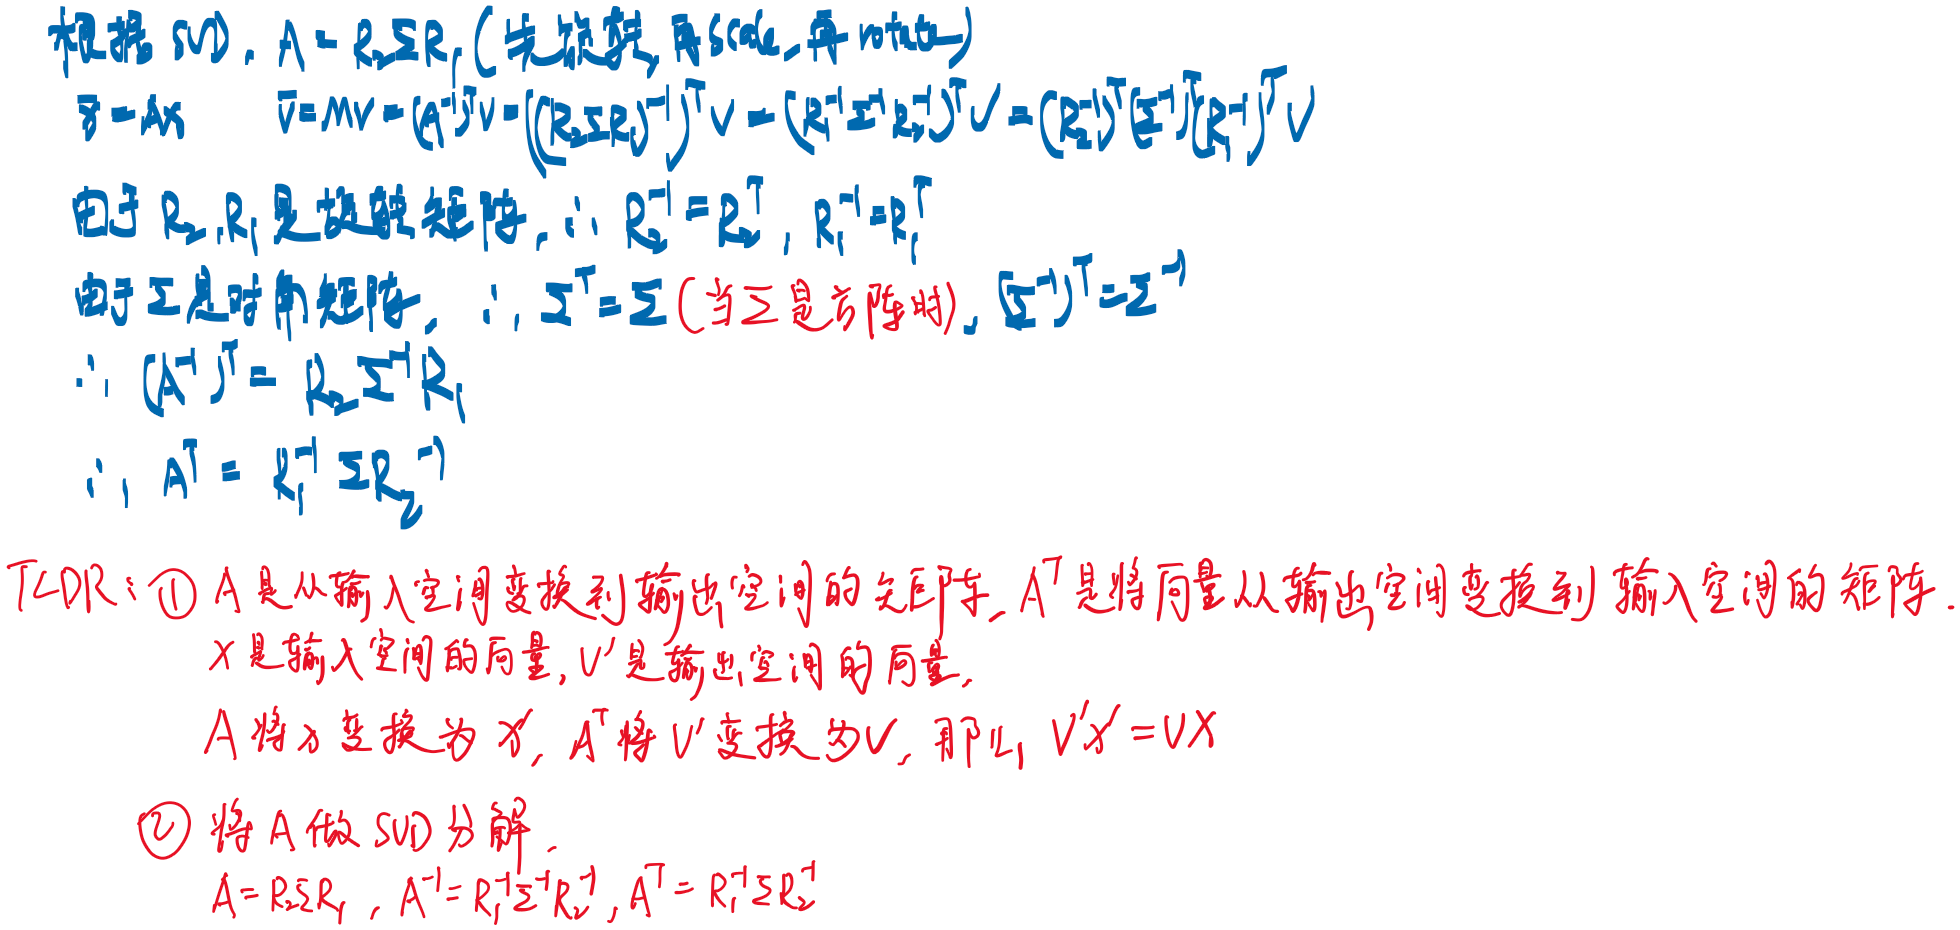 根据SVD. A = R₂ΣR₁ (先旋转, 再scale, 再rotate)
x̄ = Ax v̄ = Mv = (A⁻¹)ᵀv = ((R₂ΣR₁)⁻¹)ᵀV = (R₁⁻¹Σ⁻¹R₂⁻¹)ᵀV = (R₂⁻¹)ᵀ(Σ⁻¹)ᵀ(R₁⁻¹)ᵀV
由于 R₂, R₁是旋转矩阵, ∴ R₂⁻¹ = R₂ᵀ, R₁⁻¹ = R₁ᵀ
由于Σ是对角矩阵, ∴ Σᵀ = Σ (当Σ是方阵时), (Σ⁻¹)ᵀ = Σ⁻¹
∴ (A⁻¹)ᵀ = R₂Σ⁻¹R₁
∴ Aᵀ = R₁⁻¹ΣR₂⁻¹
TLDR: ① A是从输入空间变换到输出空间的矩阵, Aᵀ是将向量从输出空间变换到输入空间的矩阵.
x是输入空间的向量, v'是输出空间的向量,
A将x变换为x', Aᵀ将v'变换为v, 那么, v'x' = vx
② 将A做SVD分解.
A = R₂ΣR₁, A⁻¹ = R₁⁻¹Σ⁻¹R₂⁻¹, Aᵀ = R₁⁻¹ΣR₂⁻¹